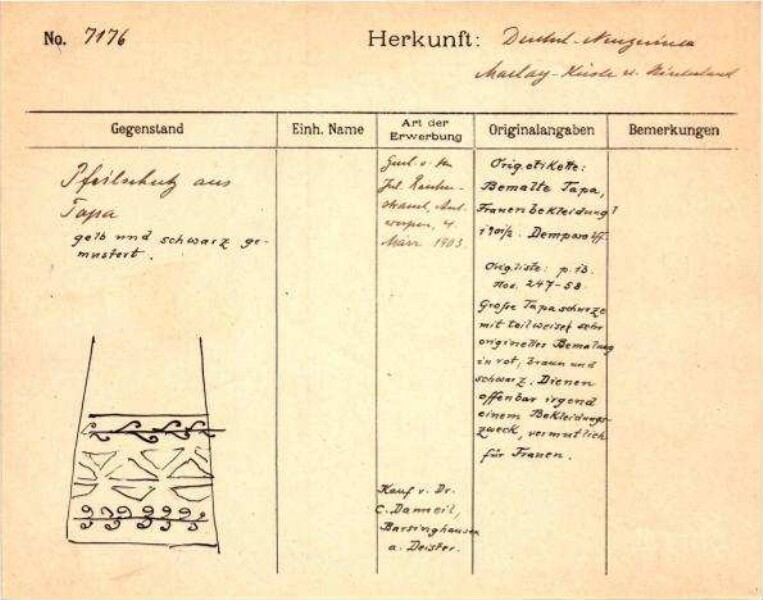 No. 7176
Herkunft: Deutsch-Neuguinea
Maclay-Küste u. Hinterland
Gegenstand
Einh. Name
Art der
Erwerbung
Originalangaben
Bemerkungen
Pfeilschutz aus
Tapa
gelb und schwarz ge-
mustert.
Jul.
März 1903
Orig. etikette:
Bemalte Tapa,
Frauenbekleidung?
Dempwolff.
Orig. liste: p. 13.
Nos. 247-58
Große Tapaschurze
mit teilweiser sehr
origineller Bemalung
in rot, braun und
schwarz. Dienen
offenbar irgend
einem Bekleidungs-
zweck, vermutlich
für Frauen.
Kauf v. Dr.
C. Danneil,
Barsinghausen
a. Deister.